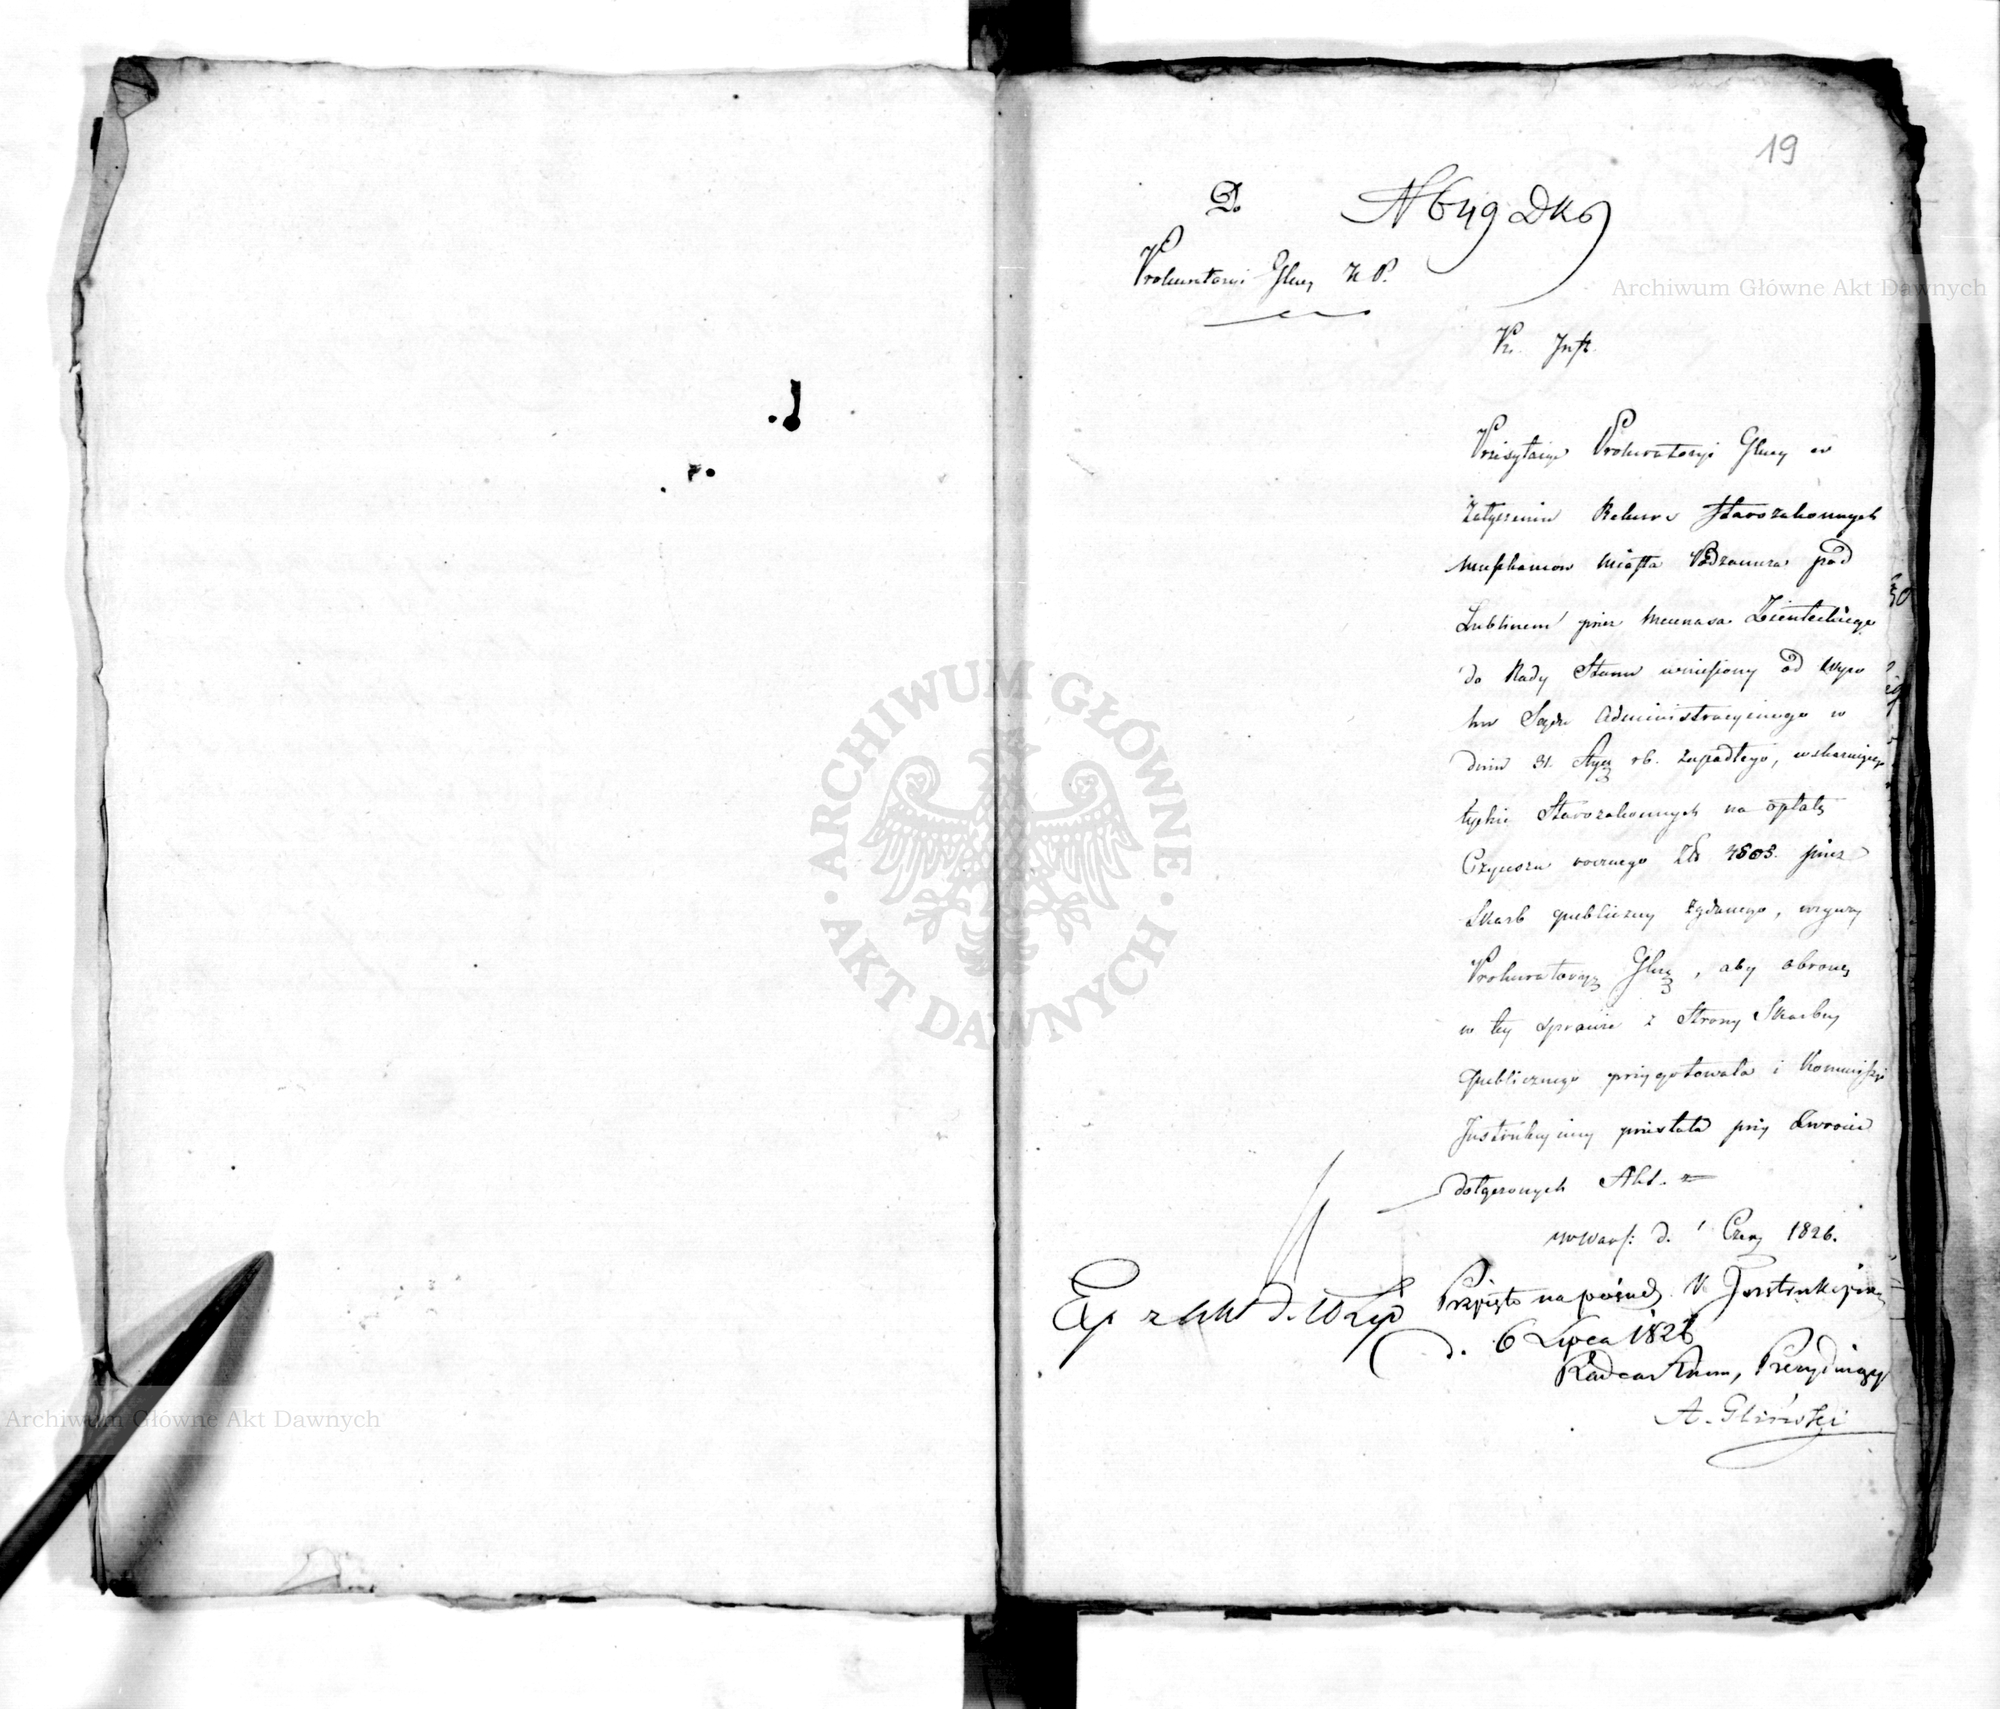 19
Do
N 649 DKS
Prokuratoryi Glney K P.
Kr. Instr.
Przesyłaiąc Prokuratoryi Glney w
Załączeniu Rekurs Starozakonnych
Mieszkancow Miasta Podzamcza pod
Lublinem przez Mecenasa Zienteckiego
do Rady Stanu wniesiony od wyro
ku Sądu Administracyinego w
dniu 31. Stycz rb. zapadłego, wskazuiącego
tychże Starozakonnych na opłatę
Czynszu rocznego Złp 4803. przez
Skarb publiczny żądanego, wzywa
Prokuratoryą Glną, aby obronę
w tey sprawie z Strony Skarbu
publicznego przygotowała i Kommissyi
Instrukcyiney przesłała przy zwrocie
dołączonych Akt.
w Wars: d. 1 Czerw 1826.
Exp z akt d. 10 Lip
Przyięto na posiedz. K. Instrukcyiney
d. 6 Lipca 1826
Radca Stanu, Prezyduiący
A. Gliński
Archiwum Główne Akt Dawnych
ARCHIWUM GŁÓWNE
AKT DAWNYCH
Archiwum Główne Akt Dawnych